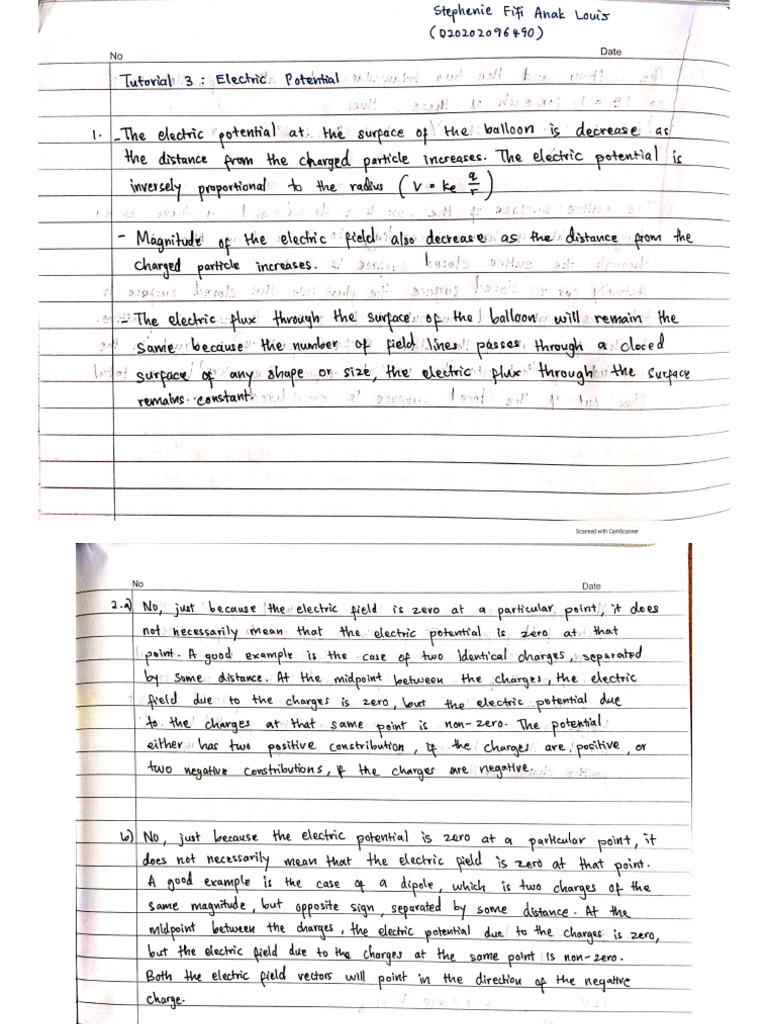 Stephenie Fifi Anak Louis
(D20202096490)
No
Date
Tutorial 3 : Electric Potential
1. - The electric potential at the surface of the balloon is decrease as
the distance from the charged particle increases. The electric potential is
inversely proportional to the radius (V = ke q/r)
- Magnitude of the electric field also decrease as the distance from the
charged particle increases.
- The electric flux through the surface of the balloon will remain the
same because the number of field lines passes through a closed
surface of any shape or size, the electric flux through the surface
remains constant.
Scanned with CamScanner
No
Date
2.a) No, just because the electric field is zero at a particular point, it does
not necessarily mean that the electric potential is zero at that
point. A good example is the case of two identical charges, separated
by some distance. At the midpoint between the charges, the electric
field due to the charges is zero, but the electric potential due
to the charges at that same point is non-zero. The potential
either has two positive constribution, if the charges are positive, or
two negative constributions, if the charges are negative.
b) No, just because the electric potential is zero at a particular point, it
does not necessarily mean that the electric field is zero at that point.
A good example is the case of a dipole, which is two charges of the
same magnitude, but opposite sign, separated by some distance. At the
midpoint between the charges, the electric potential due to the charges is zero,
but the electric field due to the charges at the same point is non-zero.
Both the electric field vectors will point in the direction of the negative
charge.